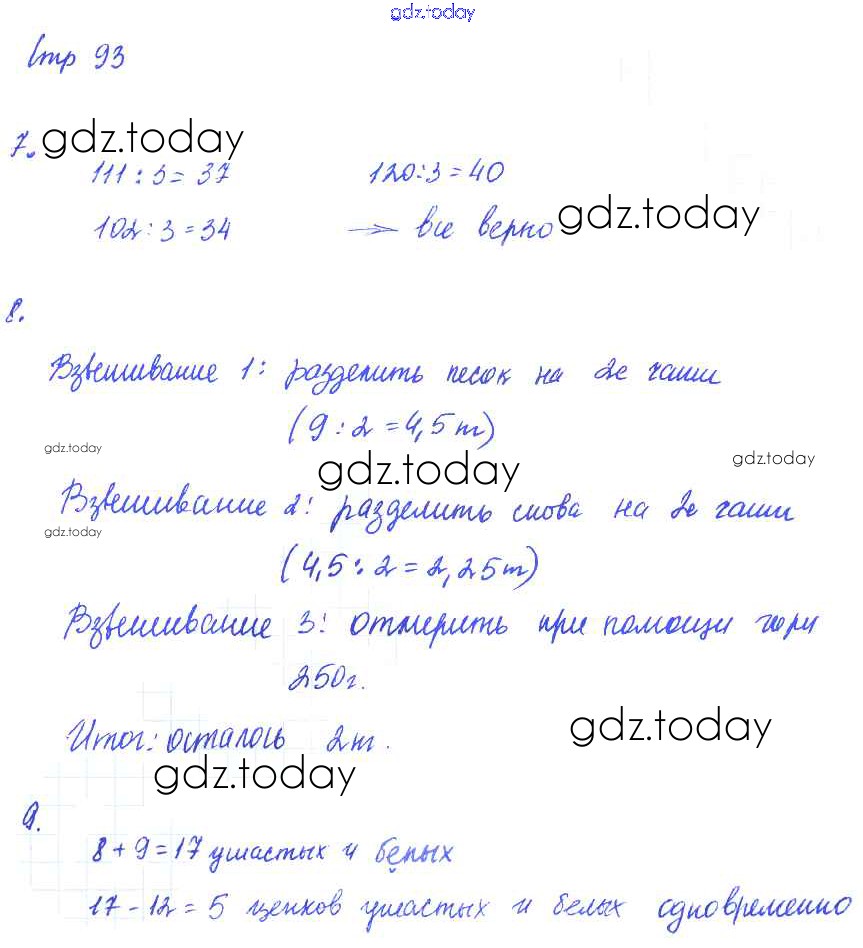 gdz.today
Стр 93
7. gdz.today
111 : 3 = 37 120 : 3 = 40
102 : 3 = 34 → все верно gdz.today
8.
Взвешивание 1: разделить песок на 2е чаши
(9 : 2 = 4,5 т)
gdz.today gdz.today gdz.today
Взвешивание 2: разделить снова на 2е чаши
gdz.today
(4,5 : 2 = 2,25 т)
Взвешивание 3: отмерить при помощи гири
250 г.
Итог: осталось 2 кг. gdz.today
gdz.today
9.
8 + 9 = 17 ушастых и белых
17 - 12 = 5 щенков ушастых и белых одновременно